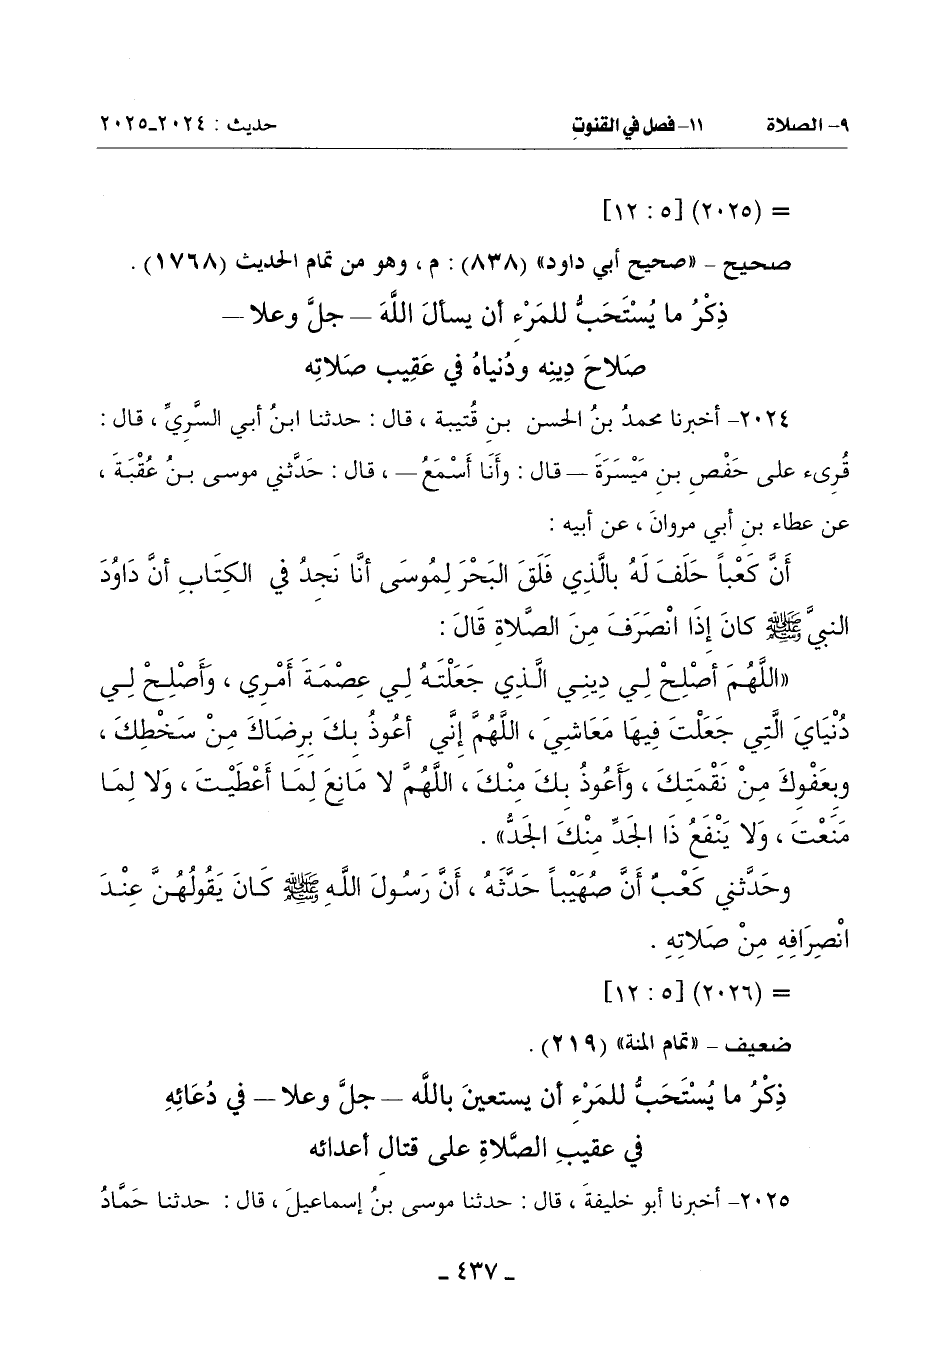 ٩- الصلاة ١١- فصل في القنوتِ حديث : ٢٠٢٤-٢٠٢٥
= (٢٠٢٥) [٥ : ١٢]
صحيح - «صحيح أبي داود» (٨٣٨) : م ، وهو من تمام الحديث (١٧٦٨) .
ذِكْرُ ما يُسْتَحَبُّ للمَرْءِ أن يسألَ اللَّهَ – جلَّ وعلا –
صَلاحَ دِينِه ودُنياهُ في عَقِيبِ صَلاتِه
٢٠٢٤- أخبرنا محمدُ بنُ الحسن بنِ قُتيبة ، قال : حدثنا ابنُ أبي السَّريِّ ، قال :
قُرىء على حَفْصِ بنِ مَيْسَرَةَ – قال : وأَنَا أَسْمَعُ – ، قال : حَدَّثني موسى بنُ عُقْبَةَ ،
عن عطاء بنِ أبي مروانَ ، عن أبيه :
أَنَّ كَعْباً حَلَفَ لَهُ بالَّذِي فَلَقَ البَحْرَ لِمُوسَى أنَّا نَجِدُ في الكِتَابِ أنَّ دَاوُدَ
النبيَّ ﷺ كانَ إذَا انْصَرَفَ مِنَ الصَّلاةِ قَالَ :
«اللَّهُمَّ أصْلِحْ لِي دِينِي الَّذِي جَعَلْتَهُ لِي عِصْمَةَ أمْرِي ، وَأَصْلِحْ لِي
دُنْيَايَ الَّتِي جَعَلْتَ فِيهَا مَعَاشِي ، اللَّهُمَّ إنَّي أعُوذُ بِكَ بِرِضَاكَ مِنْ سَخْطِكَ ،
وبِعَفْوِكَ مِنْ نَقْمَتِكَ ، وَأَعُوذُ بِكَ مِنْكَ ، اللَّهُمَّ لا مَانِعَ لِمَا أَعْطَيْتَ ، وَلا لِمَا
مَنَعْتَ ، وَلا يَنْفَعُ ذَا الجَدِّ مِنْكَ الجَدُّ» .
وحَدَّثني كَعْبٌ أَنَّ صُهَيْباً حَدَّثَهُ ، أَنَّ رَسُولَ اللَّهِ ﷺ كَانَ يَقُولُهُنَّ عِنْدَ
انْصِرَافِهِ مِنْ صَلاتِهِ .
= (٢٠٢٦) [٥ : ١٢]
ضعيف - «تمام المنة» (٢١٩) .
ذِكْرُ ما يُسْتَحَبُّ للمَرْءِ أن يستعينَ باللَّه – جلَّ وعلا – في دُعَائِهِ
في عقيبِ الصَّلاةِ على قتالِ أعدائه
٢٠٢٥- أخبرنا أبو خليفةَ ، قال : حدثنا موسى بنُ إسماعيلَ ، قال : حدثنا حَمَّادُ
- ٤٣٧ -